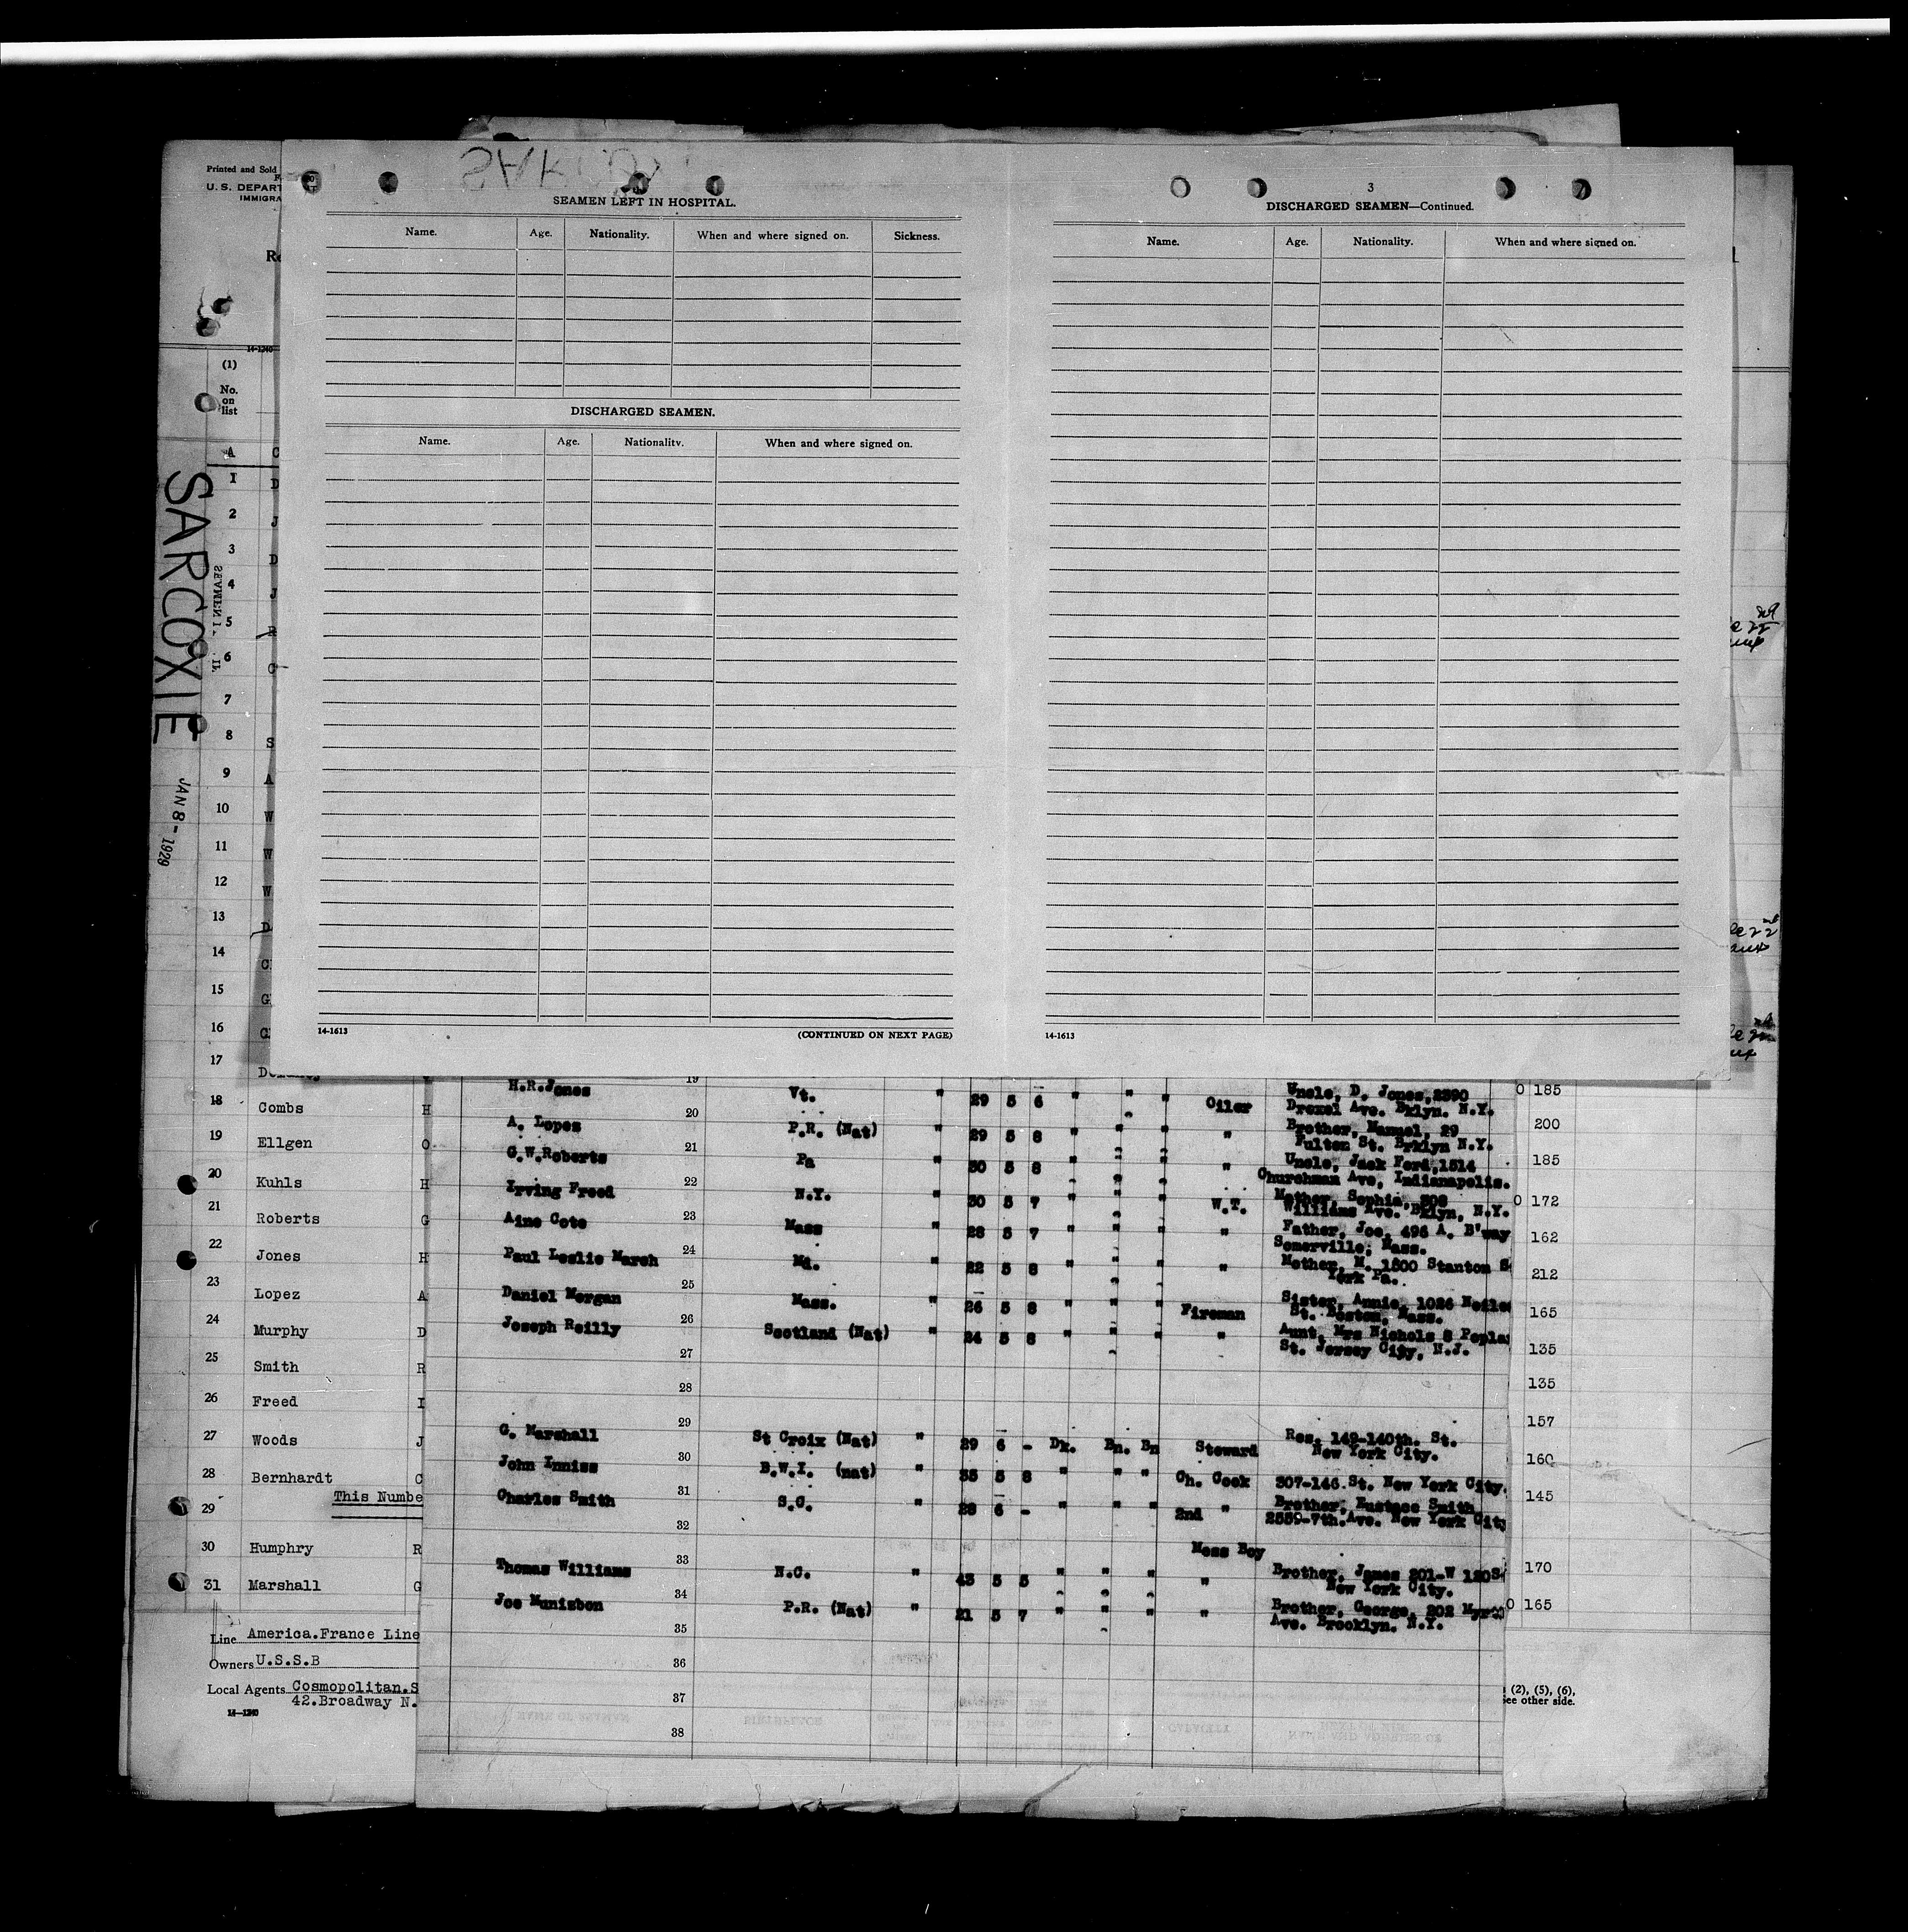 SEAMEN LEFT IN HOSPITAL.
Name. Age. Nationality. When and where signed on. Sickness.
DISCHARGED SEAMEN.
Name. Age. Nationality. When and where signed on.
14-1613 (CONTINUED ON NEXT PAGE)
3
DISCHARGED SEAMEN—Continued.
Name. Age. Nationality. When and where signed on.
14-1613
Printed and Sold
U.S. DEPART
IMMIGRA
14-1240
(1)
No.
on
list
A C
1 D
2 J
3 D
4 J
5 R
6 C
7
8 S
9 A
10 W
11 W
12 W
13 D
14 C
15 G
16
17
18 Combs H
19 Ellgen O
20 Kuhls H
21 Roberts G
22 Jones H
23 Lopez A
24 Murphy D
25 Smith R
26 Freed I
27 Woods J
28 Bernhardt C
This Numbe
29
30 Humphry R
31 Marshall G
Line America.France Line
Owners U.S.S.B
Local Agents Cosmopolitan.S
42.Broadway N.
14-1240
SARCOXIE
JAN 8-1929
19
H.R.Jones Vt. " 29 5 6 " " " Oiler Uncle, D. Jones, 2390
Drexel Ave. Bklyn. N.Y.
20
A. Lopez P.R. (Nat) " 29 5 8 " " " " Brother, Manuel, 29
Fulton St. Brklyn N.Y.
21
G.W.Roberts Pa " 30 5 8 " " " " Uncle, Jack Ford, 1514
Churchman Ave, Indianapolis.
22
Irving Freed N.Y. " 30 5 7 " " " W.T. Mother, Sophia, 308
Williams Ave. Bklyn, N.Y.
23
Aine Cote Mass " 28 5 7 " " " " Father, Joe, 496 A. B'way
Somerville, Mass.
24
Paul Leslie Marsh Md. " 22 5 8 " " " " Mother, M. 1500 Stanton S
York Pa.
25
Daniel Morgan Mass. " 26 5 8 " " " Fireman Sister, Annie, 1026
St. Boston, Mass.
26
Joseph Reilly Scotland (Nat) " 24 5 8 " " " " Aunt, Mrs Nichols 8 Popla
St. Jersey City, N.J.
27
28
29
G. Marshall St Croix (Nat) " 29 6 - Dk. Bn. Bn Steward Res. 149-140th. St.
New York City.
30
John Inniss B.W.I. (nat) " 35 5 8 " " " Ch. Cook 307-146.St. New York City.
31
Charles Smith S.C. " 28 6 - " " " 2nd " Brother, Eustace Smith
2359-7th.Ave. New York City
32
Mess Boy
33
Thomas Williams N.C. " 43 5 5 " " " " Brother, James 201-W 120S
New York City.
34
Joe Munisbon P.R. (Nat) " 21 5 7 " " " " Brother, George, 202
Ave. Brooklyn. N.Y.
35
36
37
38
0 185
200
185
0 172
162
212
165
135
135
157
160
145
170
0 165
(2), (5), (6),
see other side.